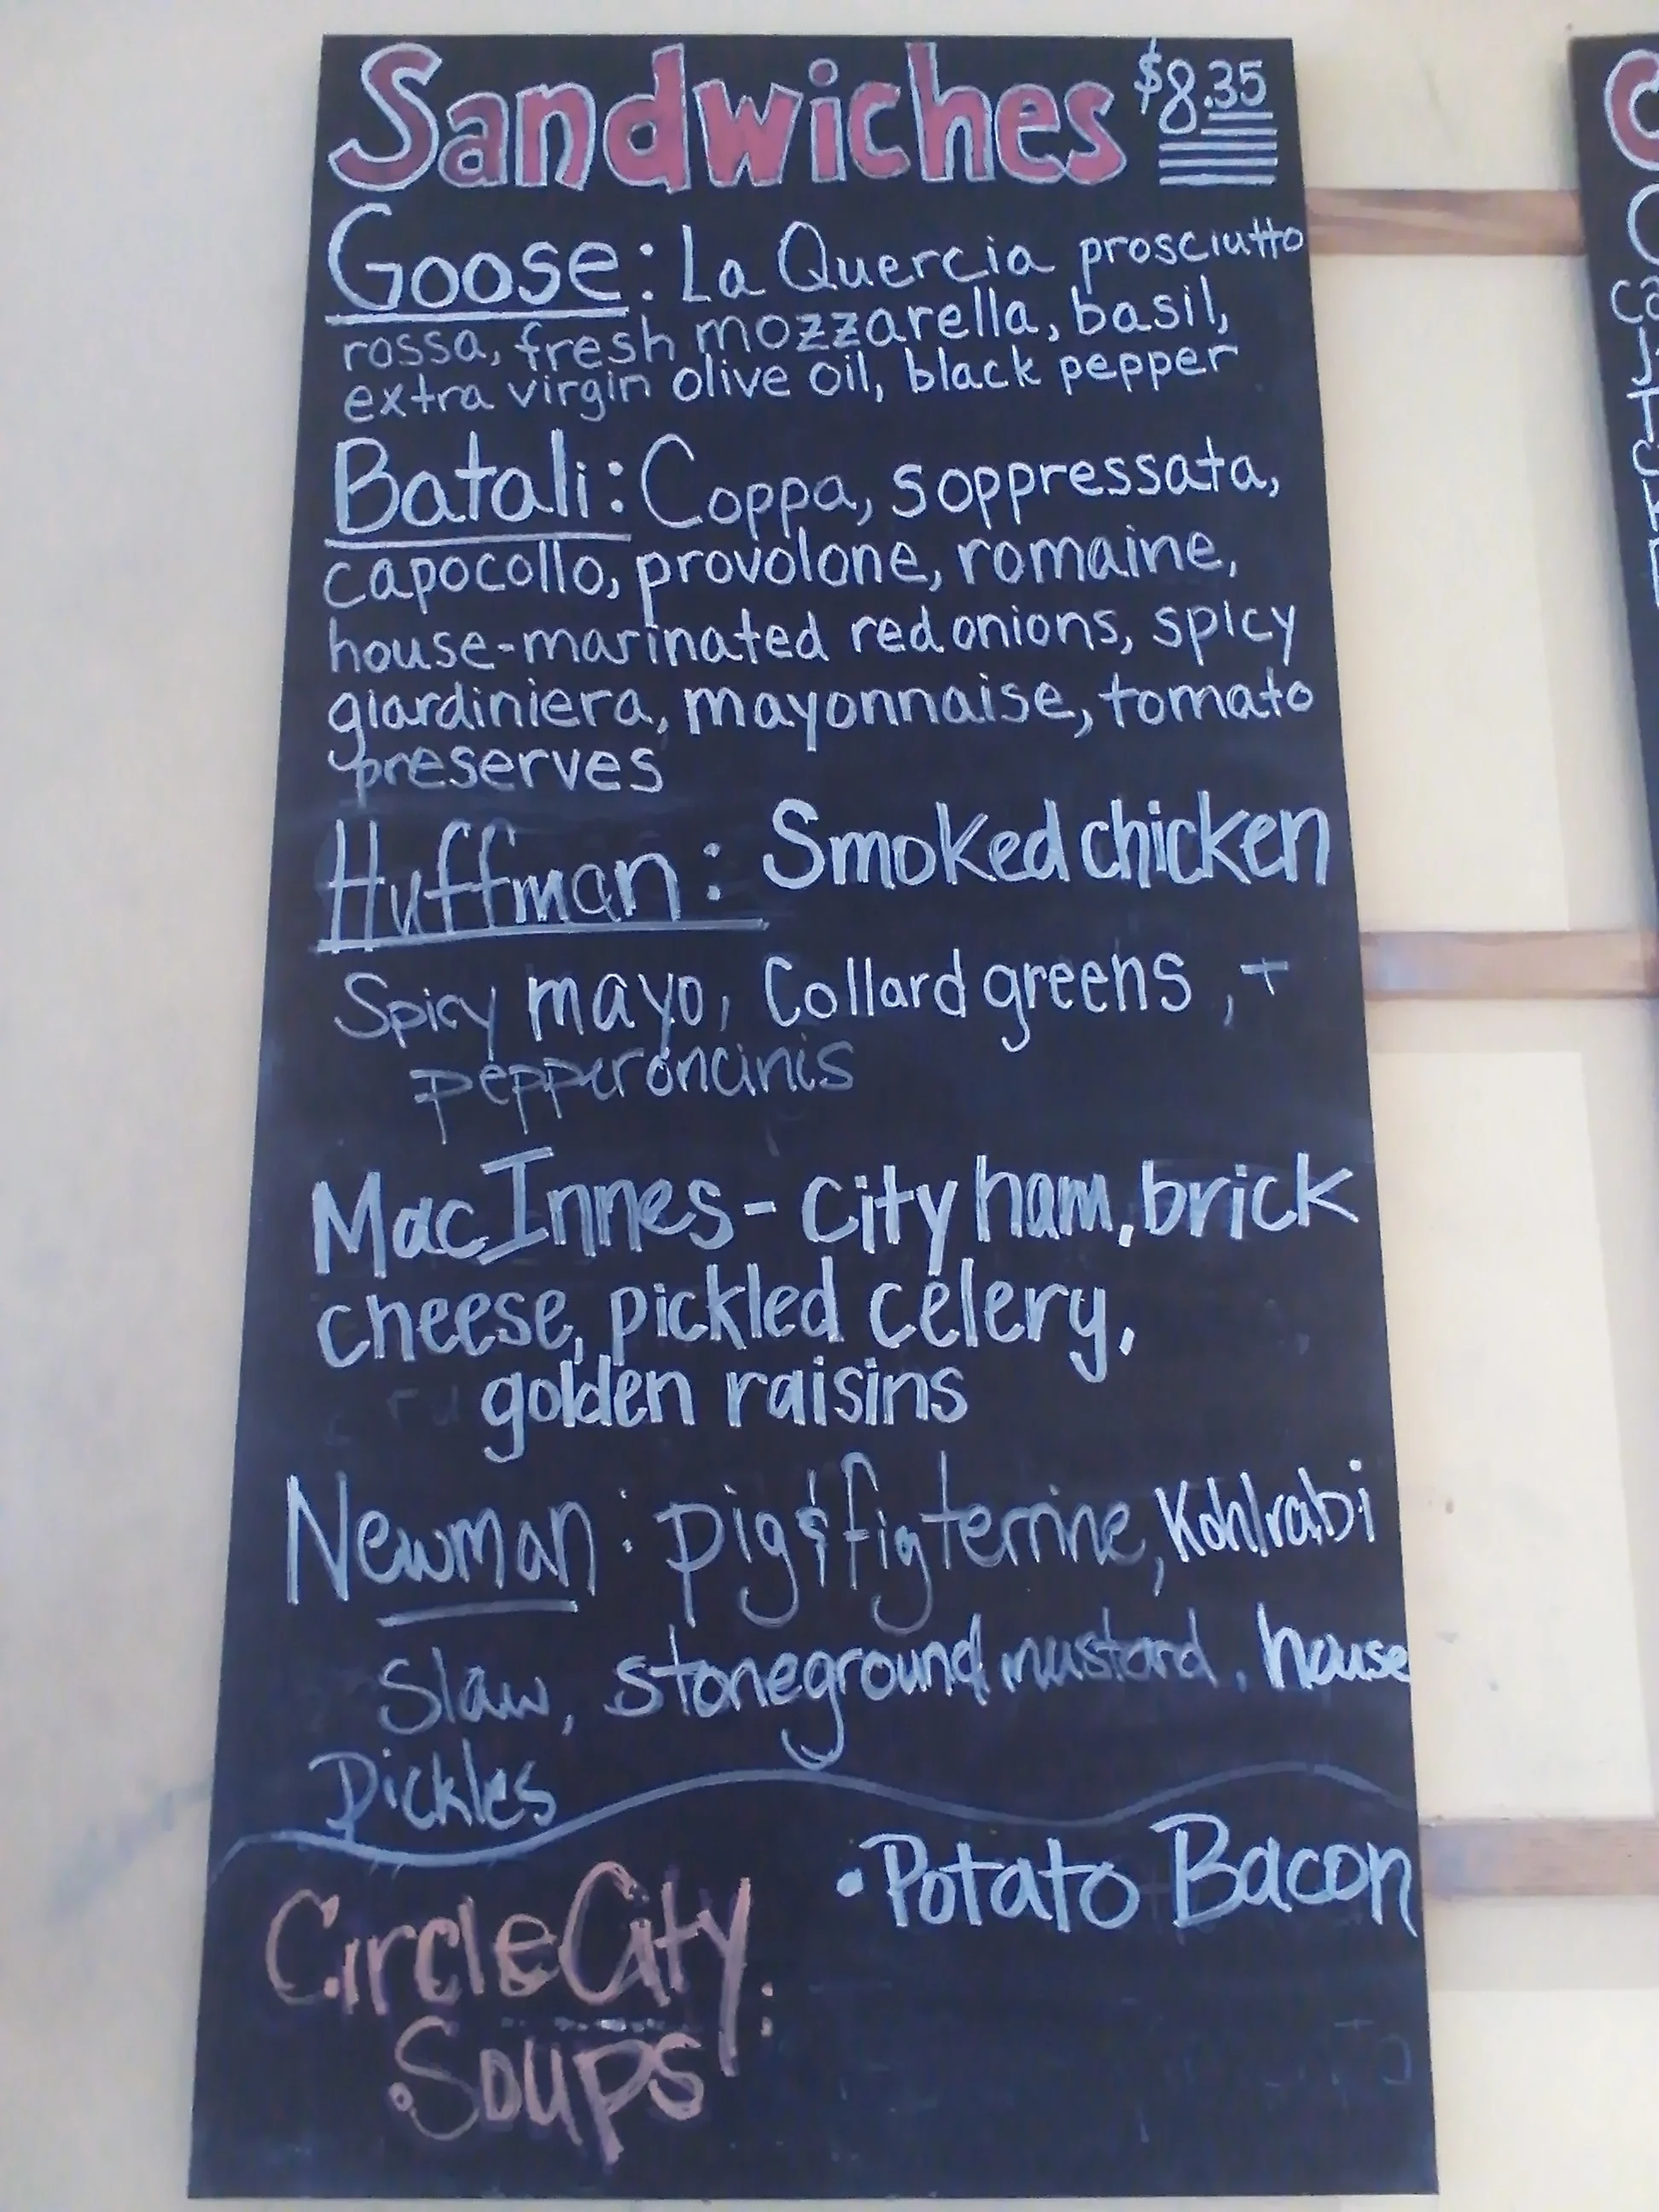 Sandwiches $8.35
Goose: La Quercia prosciutto
rossa, fresh mozzarella, basil,
extra virgin olive oil, black pepper
Batali: Coppa, soppressata,
capocollo, provolone, romaine,
house-marinated red onions, spicy
giardiniera, mayonnaise, tomato
preserves
Huffman: Smoked chicken
Spicy mayo, Collard greens, +
pepperoncinis
MacInnes - city ham, brick
cheese, pickled celery,
golden raisins
Newman: pig & fig terrine, Kohlrabi
Slaw, stoneground mustard, house
Pickles
• Potato Bacon
Circle City:
Soups